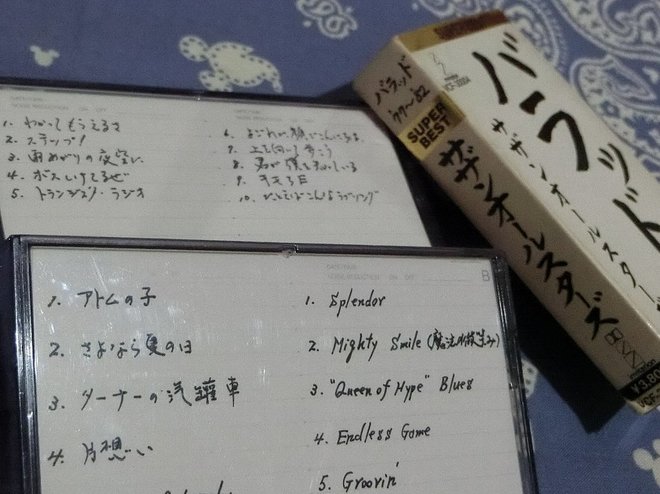 1. わかってもらえるさ
2. ステップ!
3. 雨あがりの夜空に
4. ボスしけてるぜ
5. トランジスタ・ラジオ
7. 上を向いて歩こう
8. 君が僕を知っている
1. アトムの子
2. さよなら夏の日
3. ターナーの汽罐車
4. 片想い
B
1. Splendor
2. Mighty Smile (魔法の微笑み)
3. "Queen of Hype" Blues
4. Endless Game
5. Groovin'
バラッド
'77〜'82
SUPER BEST
サザンオールスターズ
バラッド
サザンオールスターズ